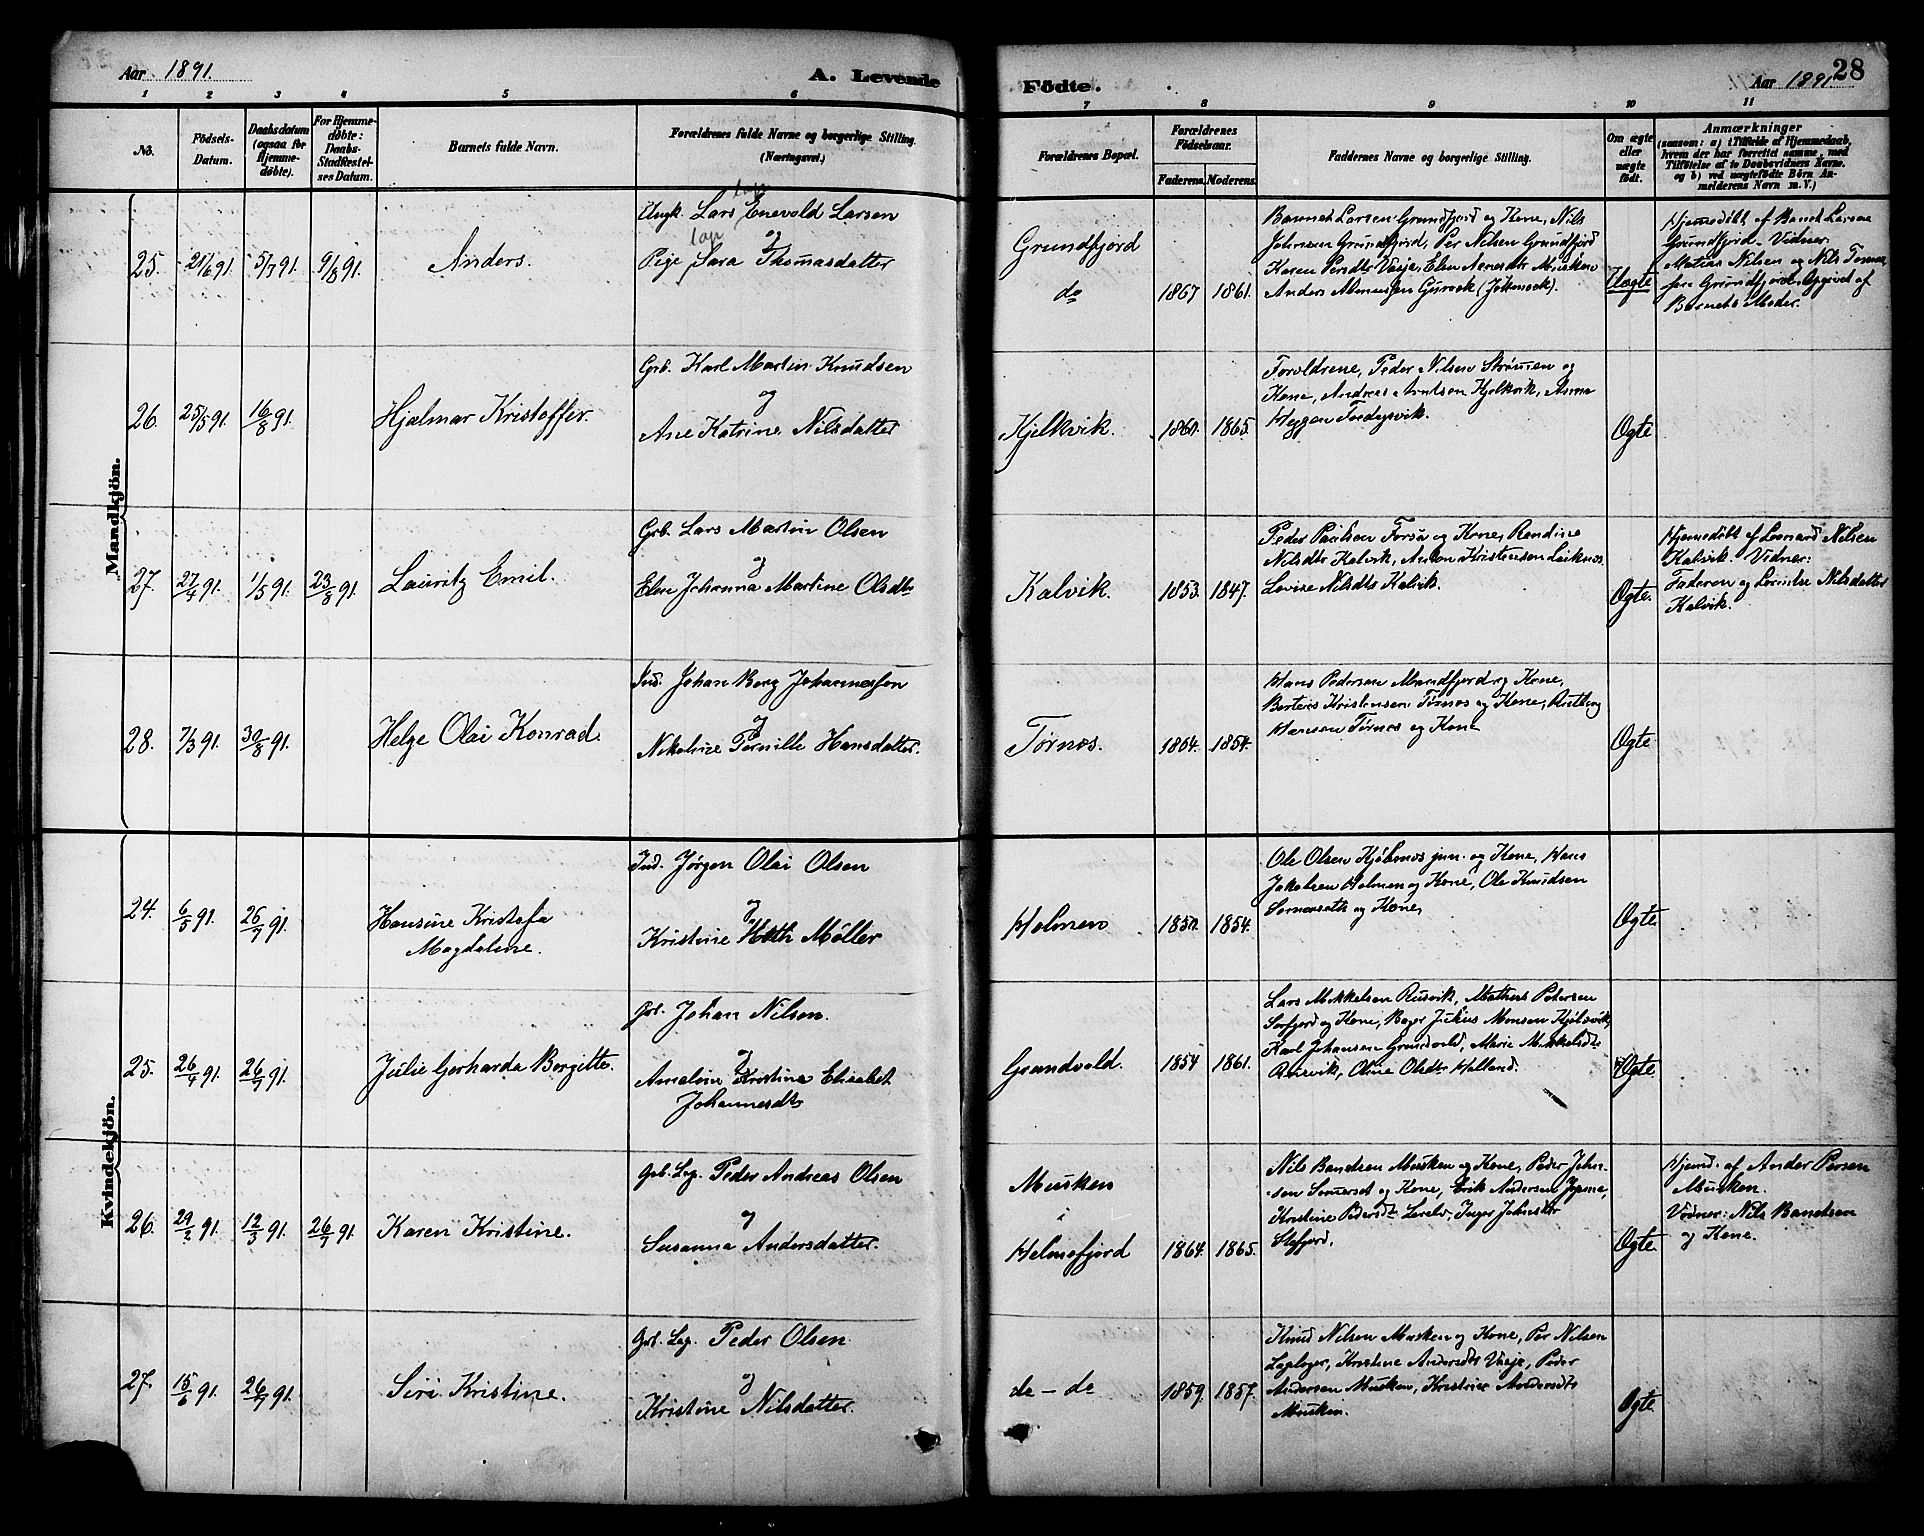 Aar 1891.
A. Levende
Födte.
Aar 1891.
28
1 2 3 4 5 6 7 8 9 10 11
No.
Födsels-
Datum.
Daabsdatum
(ogsaa for
Hjemme-
døbte).
For Hjemme-
døbte:
Daabs-
Stadfæstel-
ses Datum.
Barnets fulde Navn.
Forældrenes fulde Navne og borgerlige Stilling.
(Næringsvei.)
Forældrenes Bopæl.
Forældrenes
Födselsaar.
Faderens. Moderens.
Faddernes Navne og borgerlige Stilling.
Om ægte
eller
uægte
født.
Anmærkninger
(saasom: a) i Tilfælde af Hjemmedaab,
hvem der har forrettet samme, med
Tilföielse af to Daabsvidners Navne,
og b) ved uægtefödte Börn An-
melderens Navn m. V.)
Mandkjön.
25. 21/6 91. 5/7 91. 9/8 91.
Anders.
lap
Ungk. Lars Enevold Larsen
lap og
Pige Sara Thomasdatter
Grundfjord
do
1867 1861.
Larsen Grundfjord og Kone, Nils
Johnsen Grundfjord, Per Nilsen Grundfjord
Karen Persdtr
Anders (Jokmock).
Uægte
Hjemedøbt af Larsen
Grundfjord. Vidner:
Matias Nilsen og Nils
Grundfjord. Opgivet af
Barnets Moder.
26. 25/5 91. 16/8 91.
Hjalmar Kristoffer.
Grb. Karl Martin Knudsen
og
Ane Katrine Nilsdatter
Kjelkvik.
1860. 1865.
Forældrene, Peder Nilsen Strømen og
Kone, Andreas Arntsen Kjelkvik,
Ægte
27. 27/4 91. 1/5 91. 23/8 91.
Lauritz Emil.
Grb. Lars Martin Olsen
og
Elen Johanna Martine Olsdtr
Kalvik.
1853. 1847.
Peder Paulsen Forså og Kone, Rendine
Nilsdtr Kalvik, Anton Kristensen
Lovise Nilsdtr Kalvik.
Ægte.
Hjemedøbt af Leonard Nilsen
Kalvik. Vidner:
Faderen og Lovise Nilsdatter
Kalvik.
28. 7/3 91. 30/8 91.
Helge Olai Konrad.
Ind. Johan Borg Johannessen
og
Nikoline Pernille Hansdatter.
Tørnes.
1864. 1854.
Hans Pedersen Mandfjord og Kone,
Berteus Kristensen Tørnes og Kone,
Hansen Tørnes og Kone
Ægte
Kvindekjön.
24. 6/5 91. 26/7 91.
Hansine Kristofa
Magdalene.
Ind. Jørgen Olai Olsen
og
Kristine Hoth Møller
Holmen
1850. 1854.
Ole Olsen Kjøbnes jun. og Kone, Hans
Jakobsen Holmen og Kone, Ole Knudsen
og Kone,
Ægte.
25. 26/4 91. 26/7 91.
Julie Gerharda Borgitte.
Grb. Johan Nilsen.
og
Kristine Elisabet
Johannesdtr
Grundvold.
1854 1861.
Lars Mikkelsen Rusvik, Mathis Petersen
Sørfjord og Kone, Julius Monsen Kjølsvik,
Karl Johansen Grundvold, Marie Mikkelsdtr
Rusvik, Oline Olsdtr Halland.
Ægte.
26. 29/2 91. 12/3 91. 26/7 91.
Karen Kristine.
Grb. Lap. Peder Andreas Olsen
og
Susanna Andersdatter.
Musken
i
Helmofjord
1864. 1865.
Nils Bendtsen Musken og Kone, Peder John-
sen Somerset og Kone, Erik Andersen
Kristine Pedersdtr Inger Johnsdtr
Stefjord.
Ægte.
Hjemd. af Ander Persen
Musken.
Vidner: Nils Bendtsen
og Kone.
27. 15/6 91. 26/7 91.
Siri Kristine.
Grb. Lap. Peder Olsen.
og
Kristine Nilsdatter.
do – do
1859. 1857.
Knud Nilsen Musken og Kone, Per Nilsen
Kristine Andersdtr Peder
Andersen Musken, Kristine Andersdtr
Musken.
Ægte.